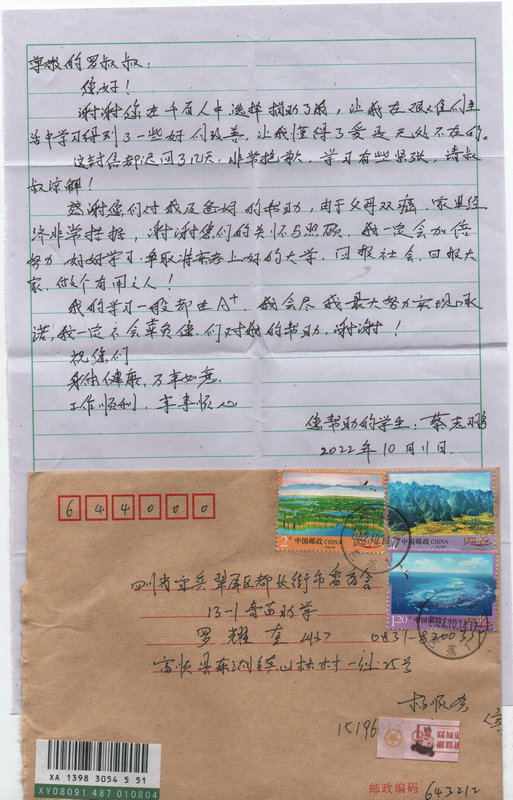 尊敬的罗叔叔:
您好!
谢谢您在千百人中选择捐助了我,让我在艰难的生
活中学习得到了一些好的改善,让我懂得了爱是无处不在的。
这封信都迟回了几天,非常抱歉,学习有些紧张,请叔
叔谅解!
感谢您们对我及爸妈的帮助,由于父母双癌,家里经
济非常拮据,谢谢您们的关怀与照顾,我一定会加倍
努力,好好学习,争取将来考上好的大学,回报社会,回报大
家,做个有用之人!
我的学习一般都在A+,我会尽我最大努力实现承
诺,我一定不会辜负您们对我的帮助,谢谢!
祝您们
身体健康,万事如意
工作顺利,事事顺心
您帮助的学生:蔡志鹏
2022年10月11日
644000
中国邮政 CHINA
中国邮政 CHINA
中国邮政 CHINA
1.20
四川省宜宾翠屏区都长街市委宿舍
13-1 助学
罗耀 437
富顺县 镇 林村一社25号
杨顺
15196
XA 1398 3054 5 51
XY08091 487 010804
邮政编码 643212